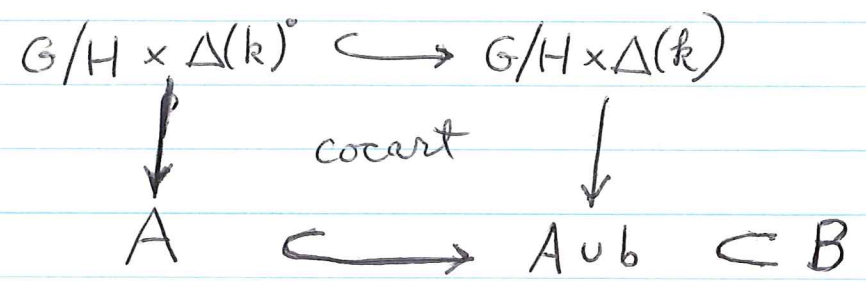 G/H × Δ(k)° ↪ G/H × Δ(k)
cocart
A ↪ A ∪ b ⊂ B